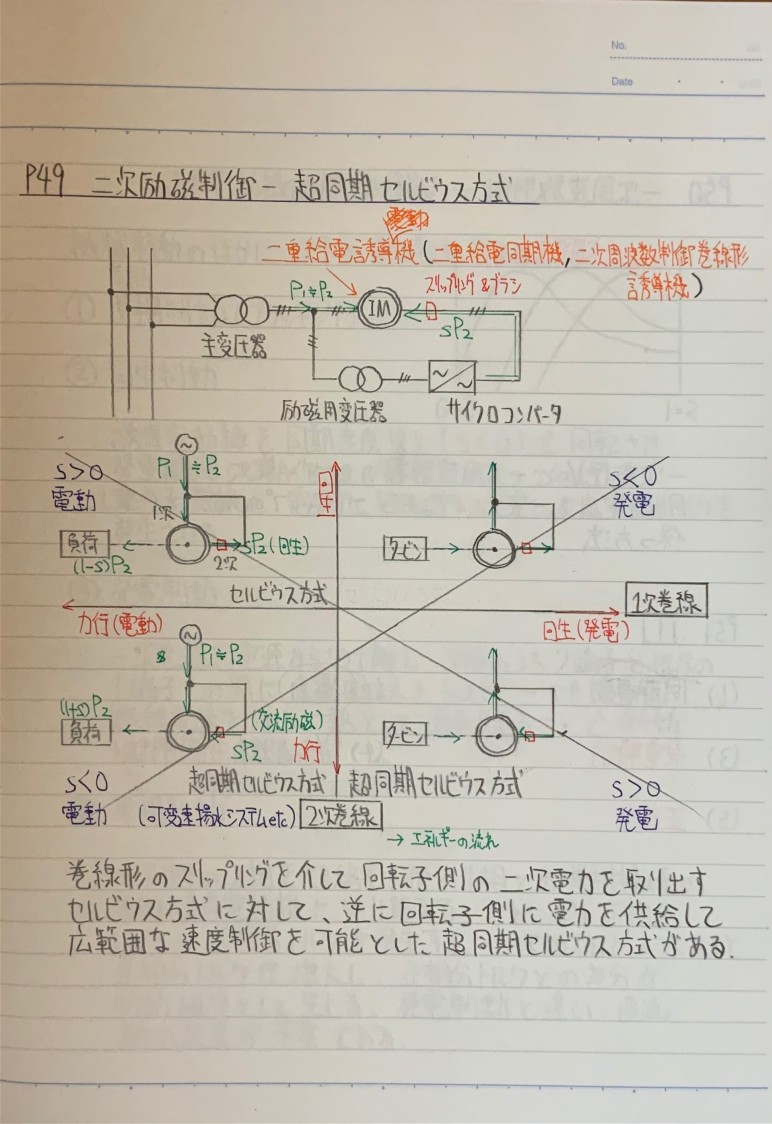 No.
Date
P49 二次励磁制御 - 超同期セルビウス方式
電動
二重給電誘導機(二重給電同期機,二次周波数制御巻線形
誘導機)
P₁≒P₂
IM
スリップリング&ブラシ
sP₂
主変圧器
励磁用変圧器
サイクロコンバータ
S>0
電動
P₁≒P₂
1次
負荷
(1-s)P₂
sP₂(回生)
2次
セルビウス方式
回生
S<0
発電
タービン
1次巻線
力行(電動)
回生(発電)
P₁≒P₂
(1+s)P₂
負荷
(交流励磁)
sP₂
力行
タービン
S<0
電動
超同期セルビウス方式
超同期セルビウス方式
S>0
発電
(可変速揚水システムetc)
2次巻線
→ エネルギーの流れ
巻線形のスリップリングを介して回転子側の二次電力を取り出す
セルビウス方式に対して、逆に回転子側に電力を供給して
広範囲な速度制御を可能とした超同期セルビウス方式がある.